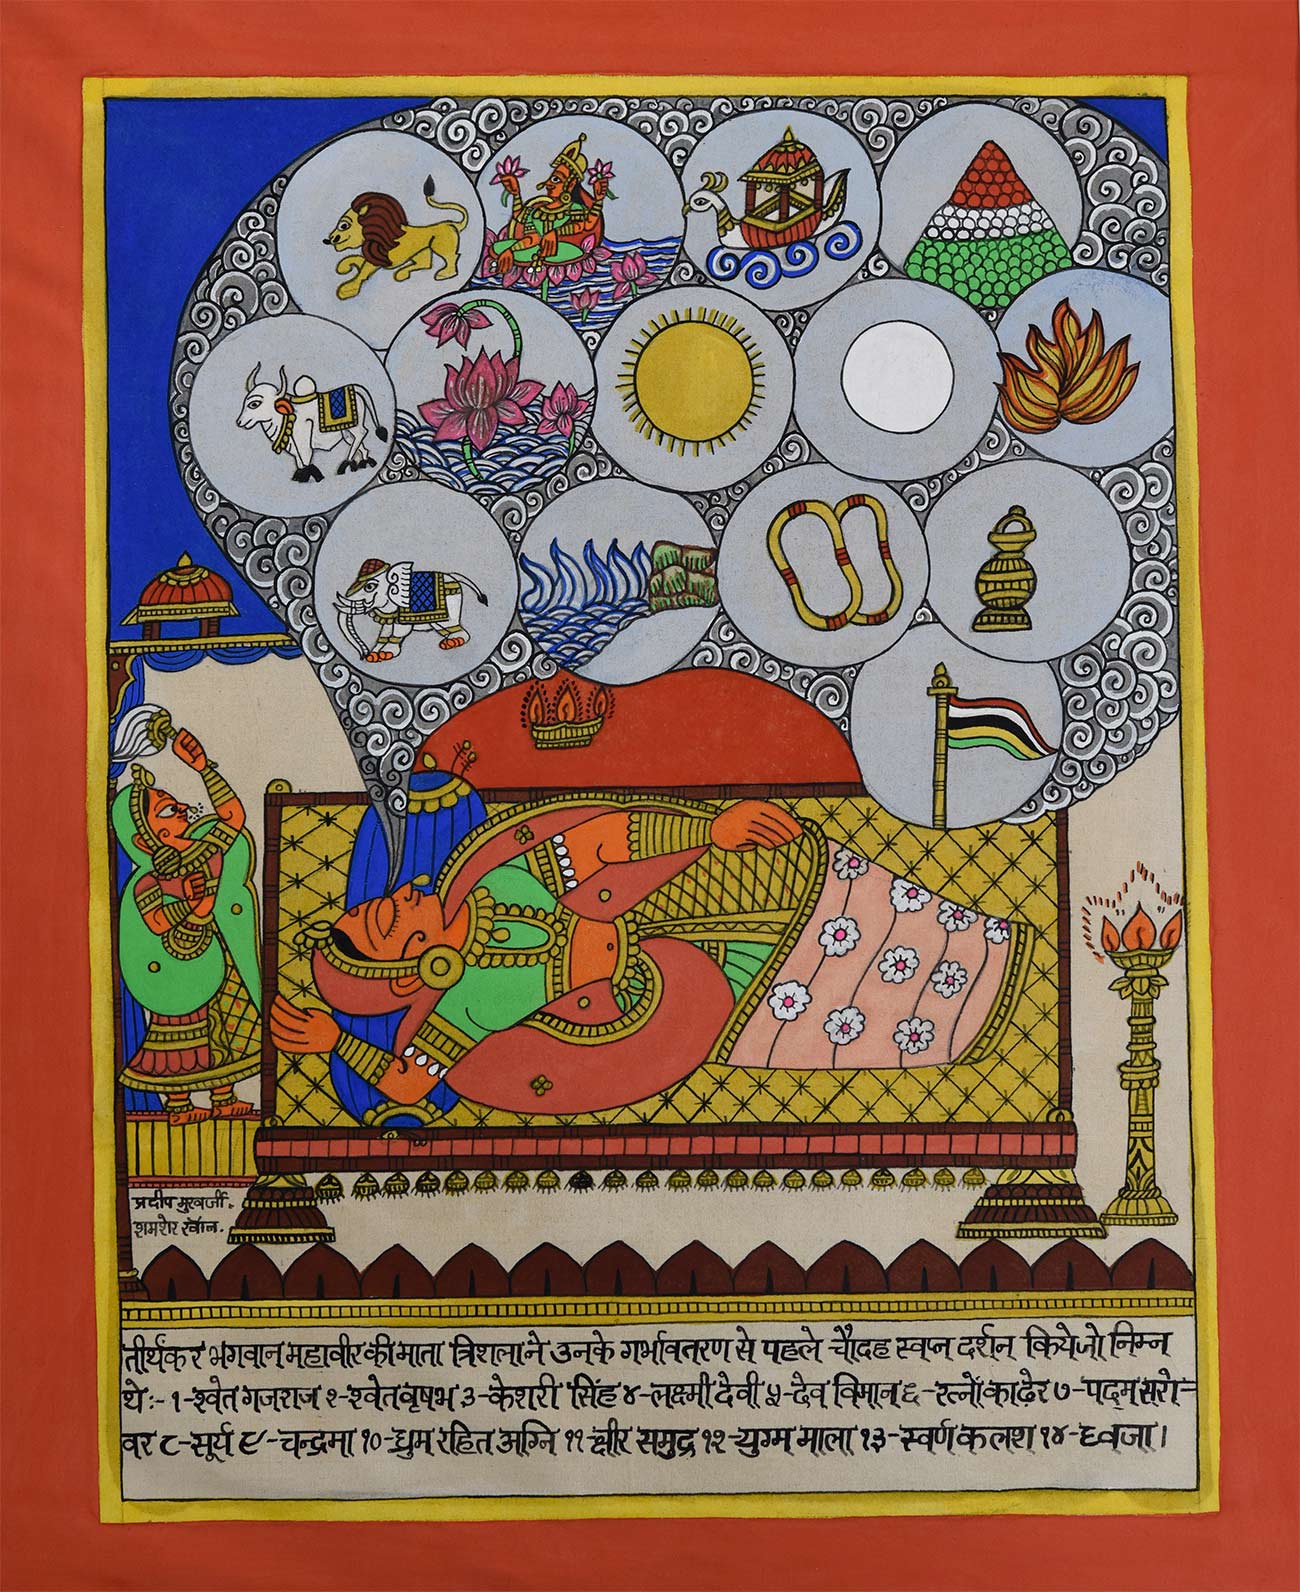 प्रदीप मुखर्जी.
शमशेर खॉन.
तीर्थंकर भगवान महावीर की माता त्रिशला ने उनके गर्भावतरण से पहले चौदह स्वप्न दर्शन कियेजो निम्न
थे:-१-श्वेत गजराज २-श्वेत वृषभ ३-केशरी सिंह ४-लक्ष्मी देवी ५-देव विमान ६-रत्नो का ढेर ७-पद्म सरो-
वर ८-सूर्य ९-चन्द्रमा १०-ध्रुम रहित अग्नि ११-क्षीर समुद्र १२-युग्म माला १३-स्वर्ण कलश १४-ध्वजा।